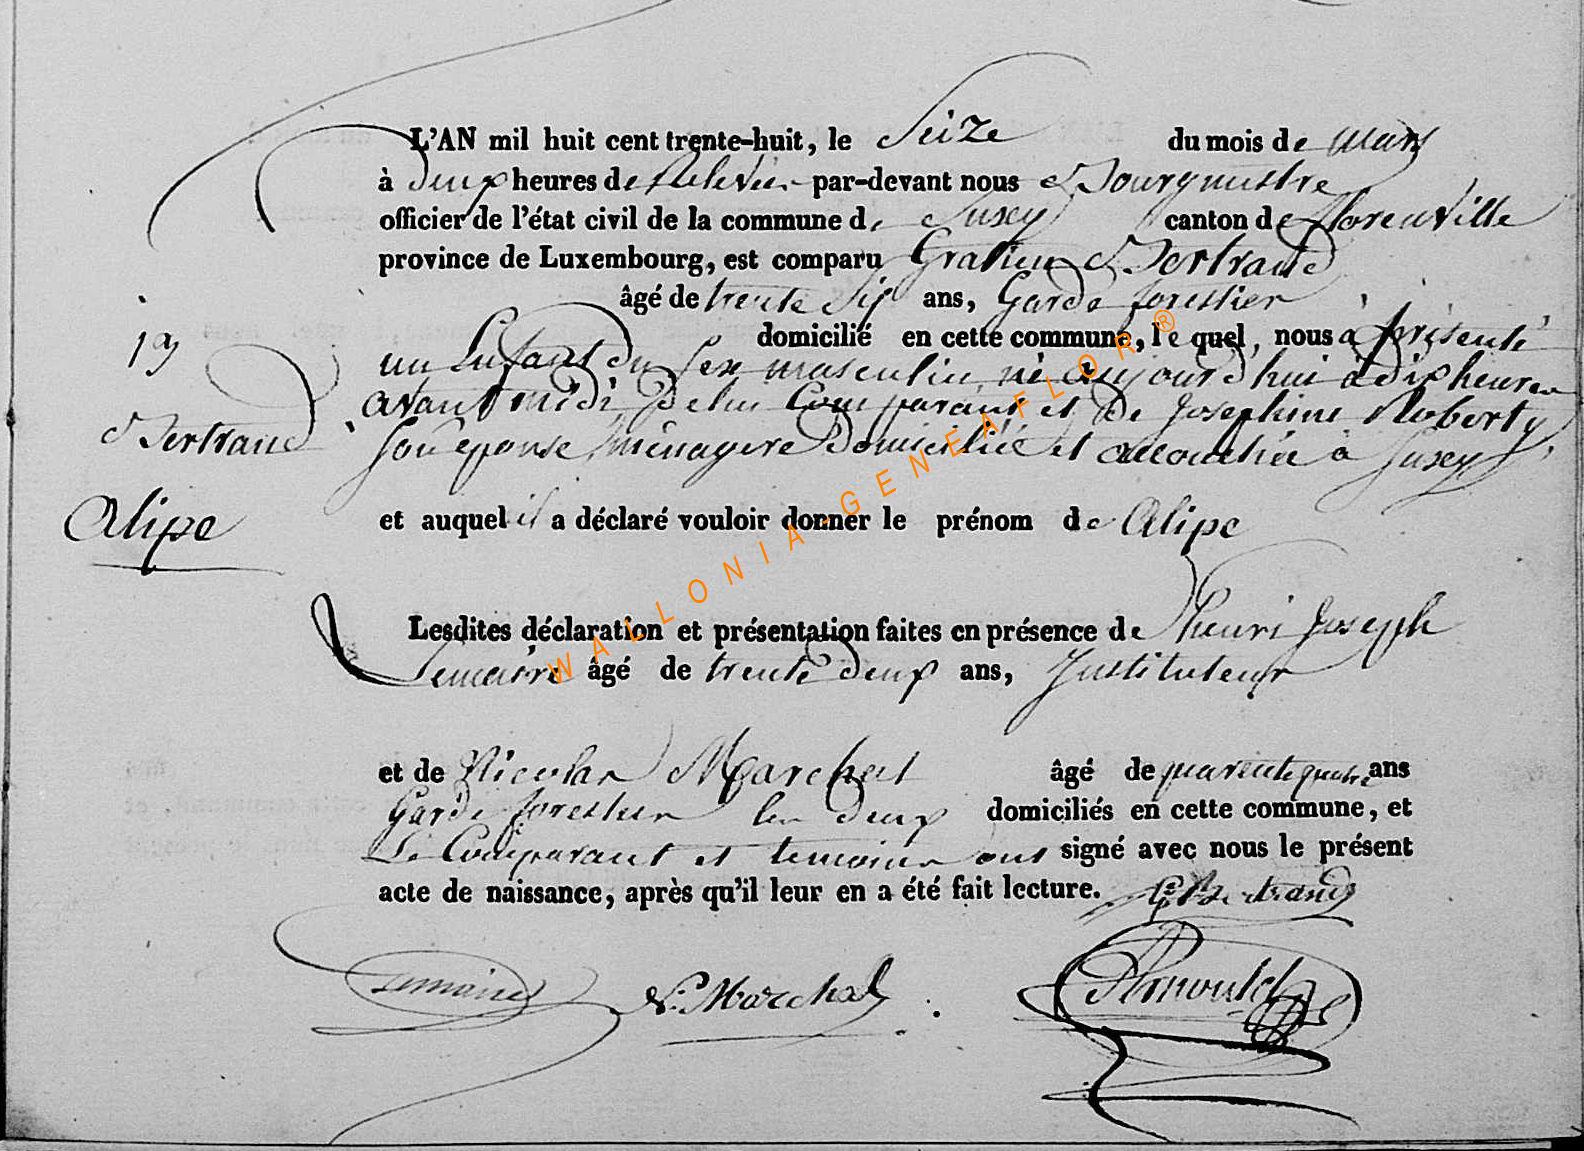 L'AN mil huit cent trente-huit, le Seize du mois de mars
à deux heures de Relevée par-devant nous Bourgmestre
officier de l'état civil de la commune de Suxy canton de florenville
province de Luxembourg, est comparu Gratien Bertrand
âgé de trente six ans, Garde forestier
domicilié en cette commune, le quel, nous à présenté
19
un Enfant du sex masculin, né aujourd'hui à dix heures
avant midi, de lui Comparant et de Josephine Roberty
Bertrand
son épouse, ménagere Domiciliée et accouchée à Suxy
Alipe
et auquel il a déclaré vouloir donner le prénom de Alipe
Lesdites déclaration et présentation faites en présence de henri Joseph
Lemaire âgé de trente deux ans, Instituteur
et de Nicolas Marchal âgé de quarente quatre ans
Garde forestier les deux domiciliés en cette commune, et
Le Comparant et temoins ont signé avec nous le présent
acte de naissance, après qu'il leur en a été fait lecture. G. Bertrand
Lemaire N. Marchal Arnould
WALLONIA-GENEAFLOR ®